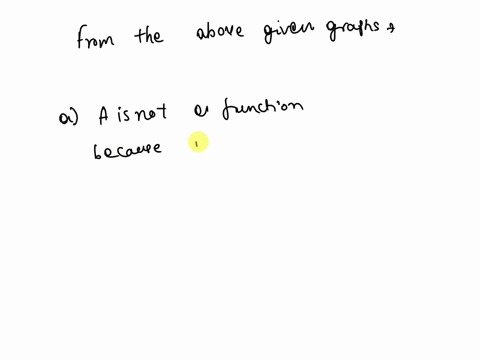 from the above given graphs →
a) A is not a function
because